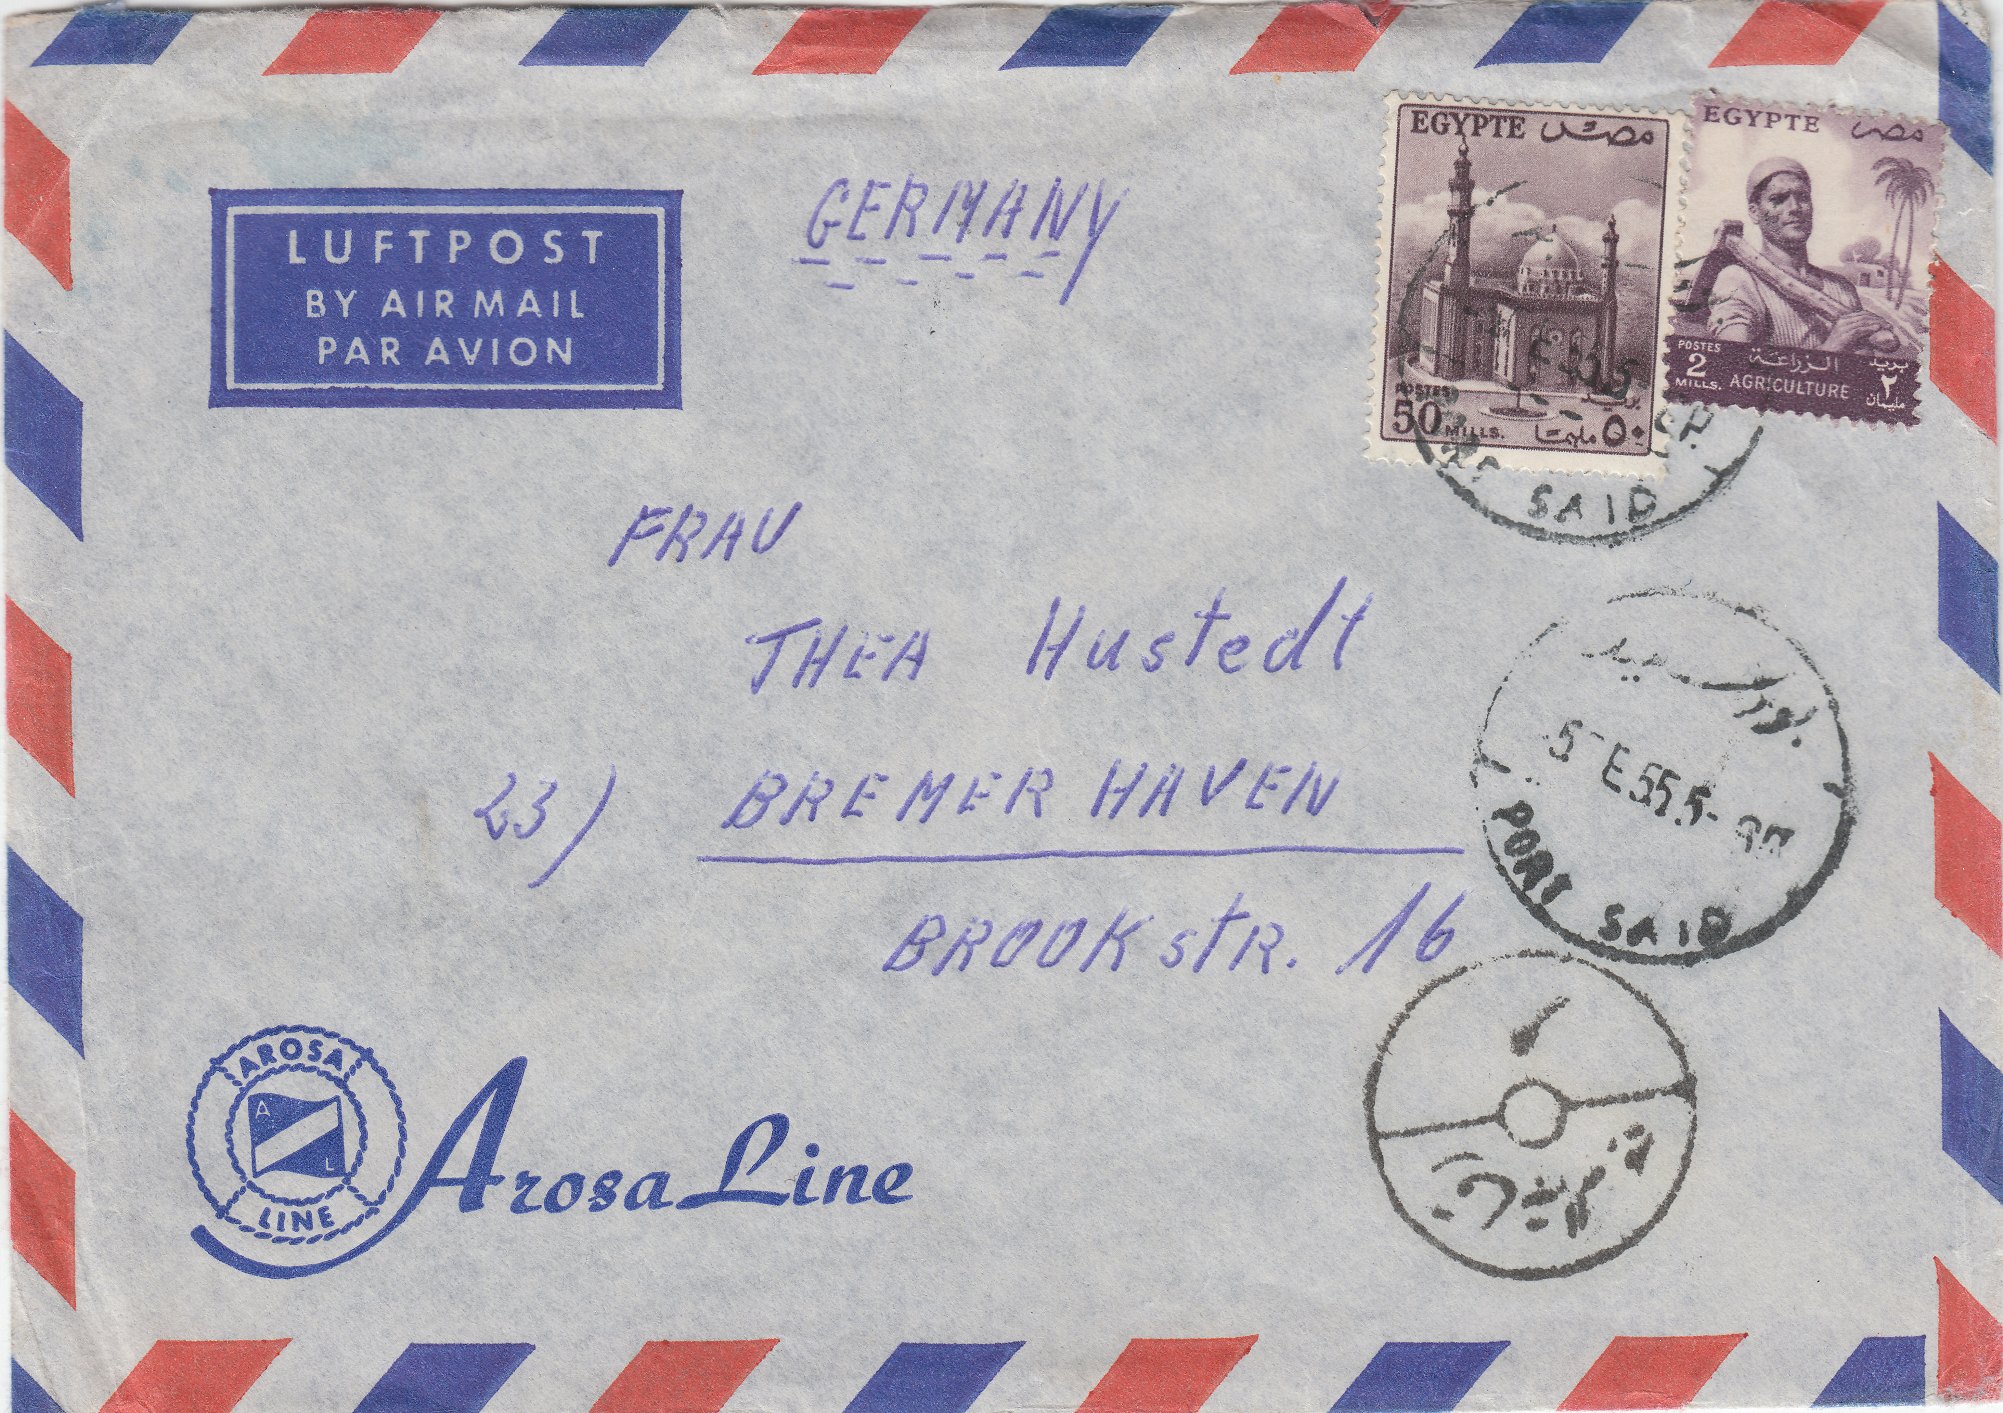 GERMANY
EGYPTE مصر
POSTES بريد
50 MILLS. ٥٠ مليمات
EGYPTE مصر
POSTES 2 MILLS. الزراعة AGRICULTURE بريد ٢ مليمان
SAID
LUFTPOST
BY AIR MAIL
PAR AVION
FRAU
THEA Hustedt
23) BREMER HAVEN
BROOKSTR. 16
بورسعيد
5 - E 55.5 -
PORT SAID
AROSA
A L
LINE
Arosa Line